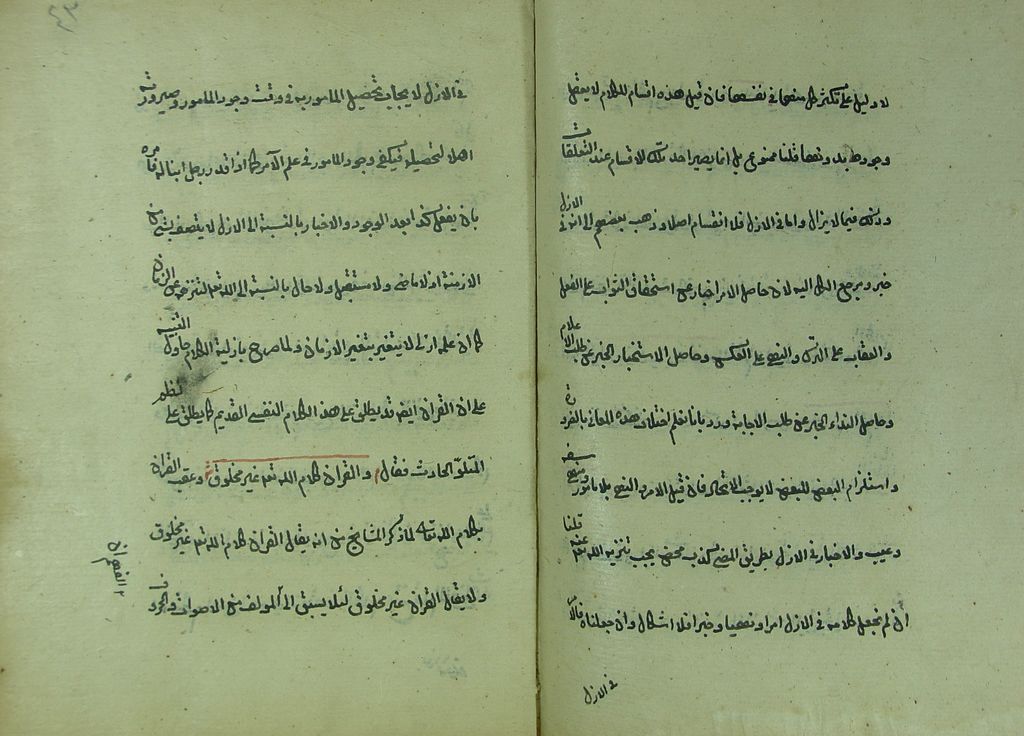 لا دليل على تكثر كل منها في نفسها فان قيل هذه اقسام للكلام لا يعقل
وجوده بدونها قلنا ممنوع بل انما يصير احد تلك الاقسام عند التعلقات
وذلك فيما لا يزال واما في الازل فلا انقسام اصلا وذهب بعضهم الى انه في الازل
خبر ومرجع الكل اليه لان حاصل الامر اخبار عن استحقاق الثواب على الفعل
والعقاب على الترك والنهي على العكس وحاصل الاستخبار الخبر عن طلب الاعلام
وحاصل النداء الخبر عن طلب الاجابة ورد بانا نعلم اختلاف هذه المعاني بالضرورة
واستلزام البعض للبعض لا يوجب الاتحاد فان قيل الامر والنهي بلا مامور ومنهي سفه
وعبث والاخبار في الازل بطريق المضي كذب محض يجب تنزيه الله تعه عنه قلنا
ان لم نجعل كلامه في الازل امرا ونهيا وخبرا فلا اشكال وان جعلناه فالامر
في الازل
٤٣
في الازل لايجاب تحصيل المامور به في وقت وجود المامور وصيرورته
اهلا لتحصيله فيكفي وجود المامور في علم الآمر كما اذا قدر رجل ابنا له فامره
بان يفعل كذا بعد الوجود والاخبار بالنسبة الى الازل لا يتصف بشئ من
الازمنة اذ لا ماضى ولا مستقبل ولا حال بالنسبة الى الله تعه لتنزهه عن الزمان
كما ان علمه ازلى لا يتغير بتغير الازمان ولما صرح بازلية الكلام حاول التنبيه
على ان القران ايضه قد يطلق على هذا الكلام النفسى القديم كما يطلق على النظم
المتلوّ الحادث فقال والقران كلام الله تعه غير مخلوق وعقب القران
بكلام الله تعا لما ذكر المشايخ من انه يقال القران كلام الله تعه غير مخلوق
ولا يقال القران غير مخلوق لئلا يسبق الى ان المؤلف من الاصوات والحروف
الفهم